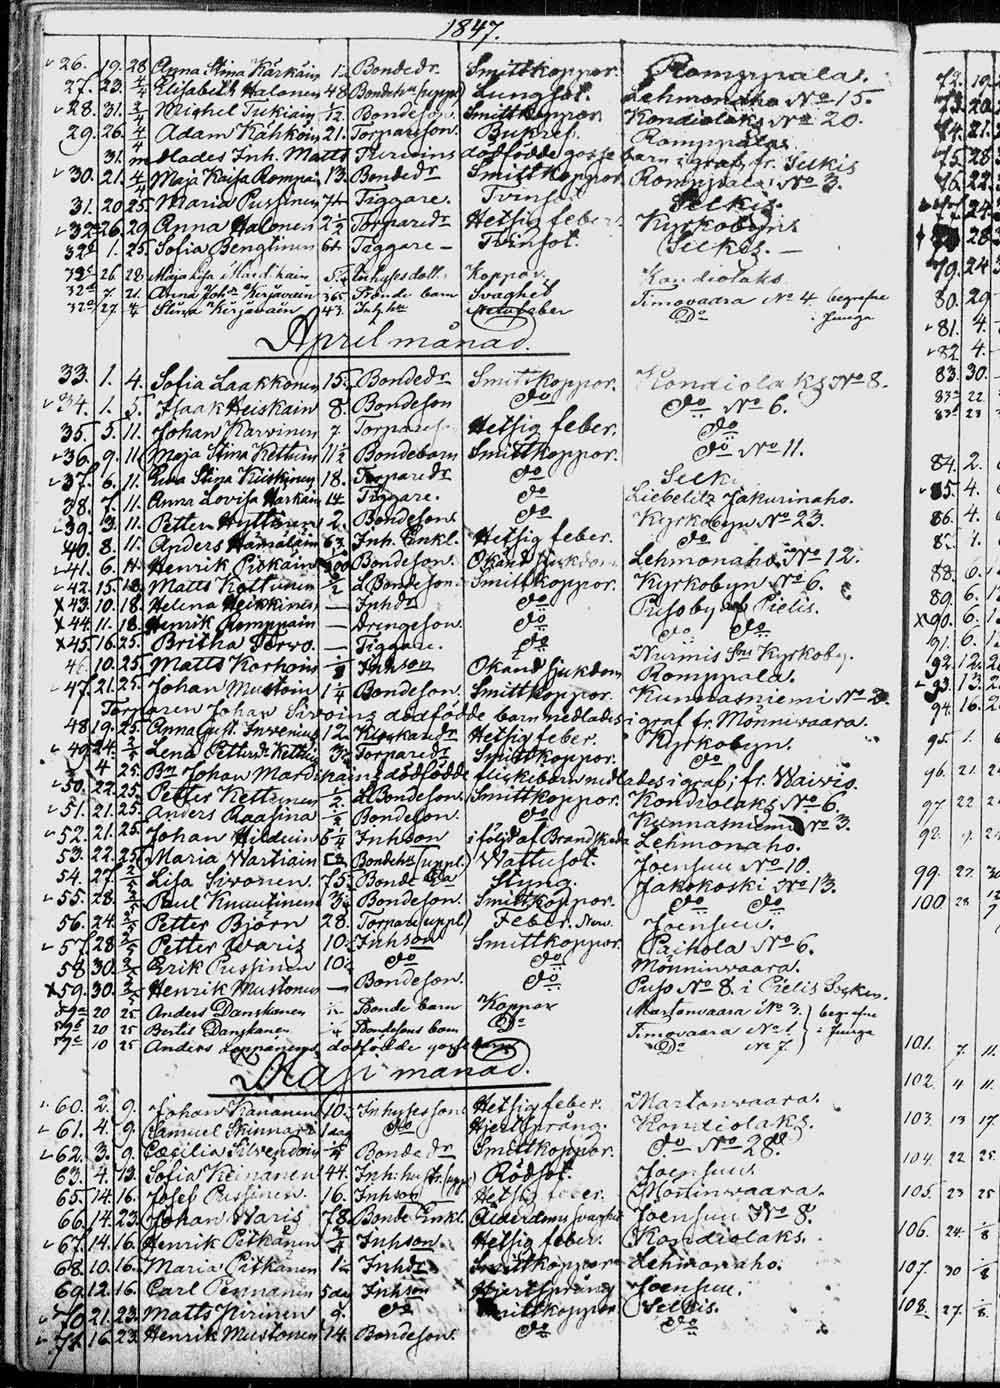 1847.
26. 19. 28 Anna Stina Kärkäin 1½ Bondedr Smittkoppor. Romppala.
27. 23. 4/4 Elisabeth Halonen 48 Bondehu (uppl) Lungsot. Lehmonaho No 15.
28. 31. 4/4 Michel Tukiain 1/12 Bondeson Smittkoppor Kondiolaks No 20.
29. 26. 4/4 Adam Kähköin 21. Torpareson. Romppala.
31. 4 medlades Inh. Matts Turuins dödfödde gosse barn i graf, fr. Selkis
30. 21. 4/4 Maja Kaisa Rompai 13. Bondedr Smittkoppor Romppala No 3.
31. 20 25 Maria Pussinen 74 Tiggare. Tvinsot. Selkis.
26. 29 Anna Halonen 2½ Torparedr Hetsig feber. Kyrkobyns
1. 25. Sofia Bengtinen 64 Tiggare – Tvinsot. Selkis. –
26 28 Maja Lisa Inhyses dott. Koppor. Kondiolaks
7. 21. Anna Kerjäväin 36 barn Svaghet Timovaara No 4 begrafne
27. 4 Stina Kerjäväin 43. Inhys feber Do i Juuga
April månad.
33. 1. 4. Sofia Laakkonen 15. Bondedr Smittkoppor. Kondiolaks No 8.
34. 1. 5. Isaak Heiskain 8. Bondeson do do No 6.
35. 5. 11. Johan Karvinen 7. Torpares. Hetsig feber. do
36. 9. 11 Maja Stina Kettuin 11½ Bondebarn Smittkoppor. do No 11.
37. 6. 11. Eva Stina Kiiskinen 18. Torparedr do Selki
38. 7. 11. Anna Lovisa Harkain 14. Tiggare. do Liebelitz Jakurinaho.
39. 13. 11. Petter Hyttinen 2. Bondeson. do Kyrkobyn No 23.
40. 8. 11. Anders Hämäläin 63 Inh. Enkl. Hetsig feber. do
41. 6. 14. Henrik Pitkäin Bondeson. Okänd sjukdom Lehmonaho No 12.
42. 15. 18. Matts Kettunen ½ LBondeson. Smittkoppor. Kyrkobyn No 6.
43. 10. 18. Helena Heikkinen — Inhdr do Pusoby af Pielis.
44. 11. 18. Henrik Romppain — Drengeson. do do do
45. 16. 25. Britha Torvo. — Tiggare. do Nurmis Sn Kyrkoby.
46. 10. 25. Matts Korhoin Inhson Okänd sjukdom Romppala.
47. 21. 25. Johan Mustoin 1¼ Bondeson. Smittkoppor. Kunnasniemi No 2.
Torparen Johan Sivoins dödfödde barn nedlades i graf fr. Mönnivaara.
48 19. 25. Anna Gust. Invenius 12. Klockaredr Hetsig feber. Kyrkobyn.
49 24. Lena Pettersdr Kettuin 3½ Torparedr Smittkoppor. do
4 25. Bn Johan Mardikains dödfödde flickebarn nedlades i graf; fr. Waivio.
50. 22. 25. Petter Kettunen ½ LBondeson. Smittkoppor. Kondiolaks No 6.
51. 21. 25. Anders Raasina ½ Bondeson. do Kunnasniemi No 3.
52. 21. 25. Johan Hilduin 5¼ Inhson i följd af Brandskada Lehmonaho.
53. 22. 25. Maria Wartiain Bondehu (uppl.) Wattusot. Joensuu No 10.
54. 27. 2/5 Lisa Sivonen. 75 Bonde Eka Styng. Jakokoski No 13.
55. 28. 2/5 Paul Knuutinen 3½ Bondeson. Smittkoppor. do do
56. 24. 2/5 Petter Björn 28. Torpare (uppl) Feber. Joensuu.
57. 28 2/5 Petter Waris 10½ Inhson Smittkoppor. Paihola No 6.
58 30. 2/5 Erik Pussinen 10½ do do Mönninvaara.
59. 30. 2/5 Henrik Mustonen — Bondeson. do Puso No 8. i Pielis Socken.
59 20 25 Anders Danskanen Bonde barn Koppor Martonvaara No 3. begrafne
59 20 25 Bertil Danskanen Bondesons barn Do Timovaara No 1. i Juuga
59 10 25 Anders dödfödde gosse barn Do No 7.
Maji månad.
60. 2. 9. Johan Kananen 10. Inhysesson Hetsig feber. Martonvaara.
61. 4. 9. Samuel Skinnari 1 dag do Hjertsprång. Kondiolaks.
62. 3. 9. Cæcilia Silvendoin Bondedr Smittkoppor. do No 28.
63. 4. 13. Sofia Keinänen 44. Inh: hustr. (uppl) Rödsot. Joensuu.
65. 14. 16. Josef Pussinen. 16. Inhson Hetsig feber. Mönninvaara.
66. 14. 23. Johan Waris 78. Bonde Enkl. Ålderdoms svaghet Joensuu No 8.
67. 14. 16. Henrik Pitkänen Inhson. Hetsig feber. Kondiolaks.
68. 10. 16. Maria Pitkänen 1½ Inhdr. Smittkoppor Lehmonaho.
69. 12. 16. Carl Pennanen 5 da Inhson Hjertsprång Joensuu.
70 21. 23. Matts Kirinen 9. do Smittkoppor Selkis.
71. 16. 23. Henrik Mustonen 14. Bondeson. do do
79. 24
80. 29
81. 4.
82. 4.
83. 30
84. 2.
85. 4.
86. 4.
88. 6.
89. 6.
90. 6.
91. 6.
92. 12.
93. 13.
94. 16.
95. 1.
96. 21.
97 22
99. 27.
100 28
101. 7. 11.
102. 4 11.
103. 13 17.
104. 22 25.
105. 23 25
106. 24.
107. 30
108. 27.